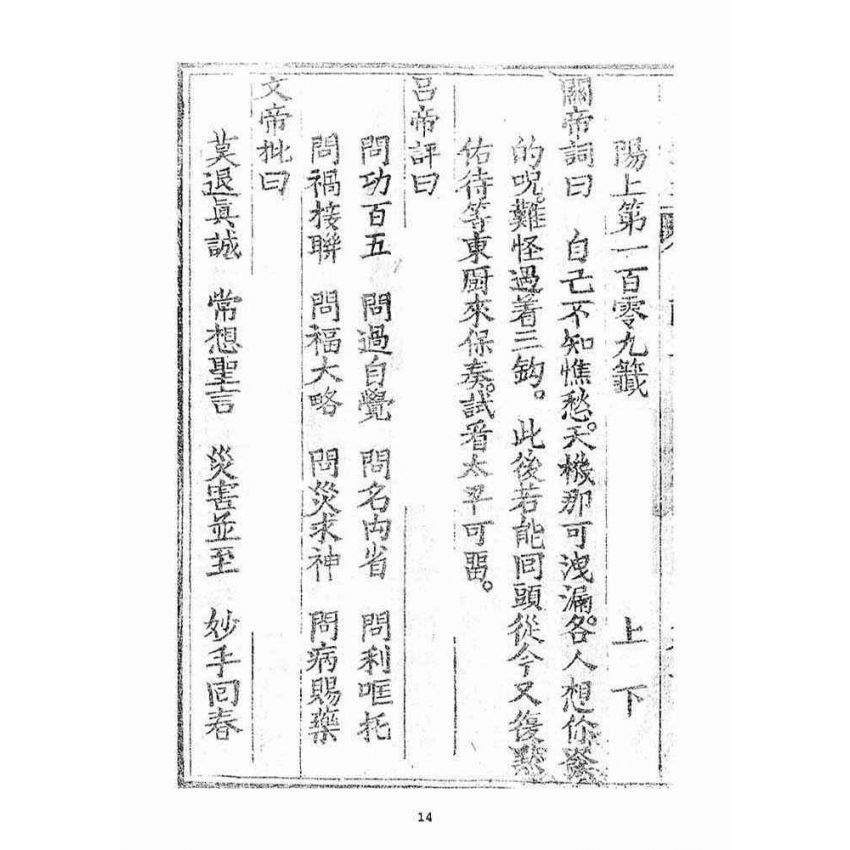 陽上第一百零九籤 上下
關帝詞曰 自己不知憔愁。天機那可洩漏。各人想你
的呪。難怪過着三鈎。此後若能回頭從今又復
佑待等東厨來保奏。試看太平可畱。
呂帝評曰
問功百五 問過自覺 問名內省 問利哐托
問禍接聯 問福大略 問災求神 問病賜藥
文帝批曰
莫退眞誠 常想聖言 災害並至 妙手回春
14